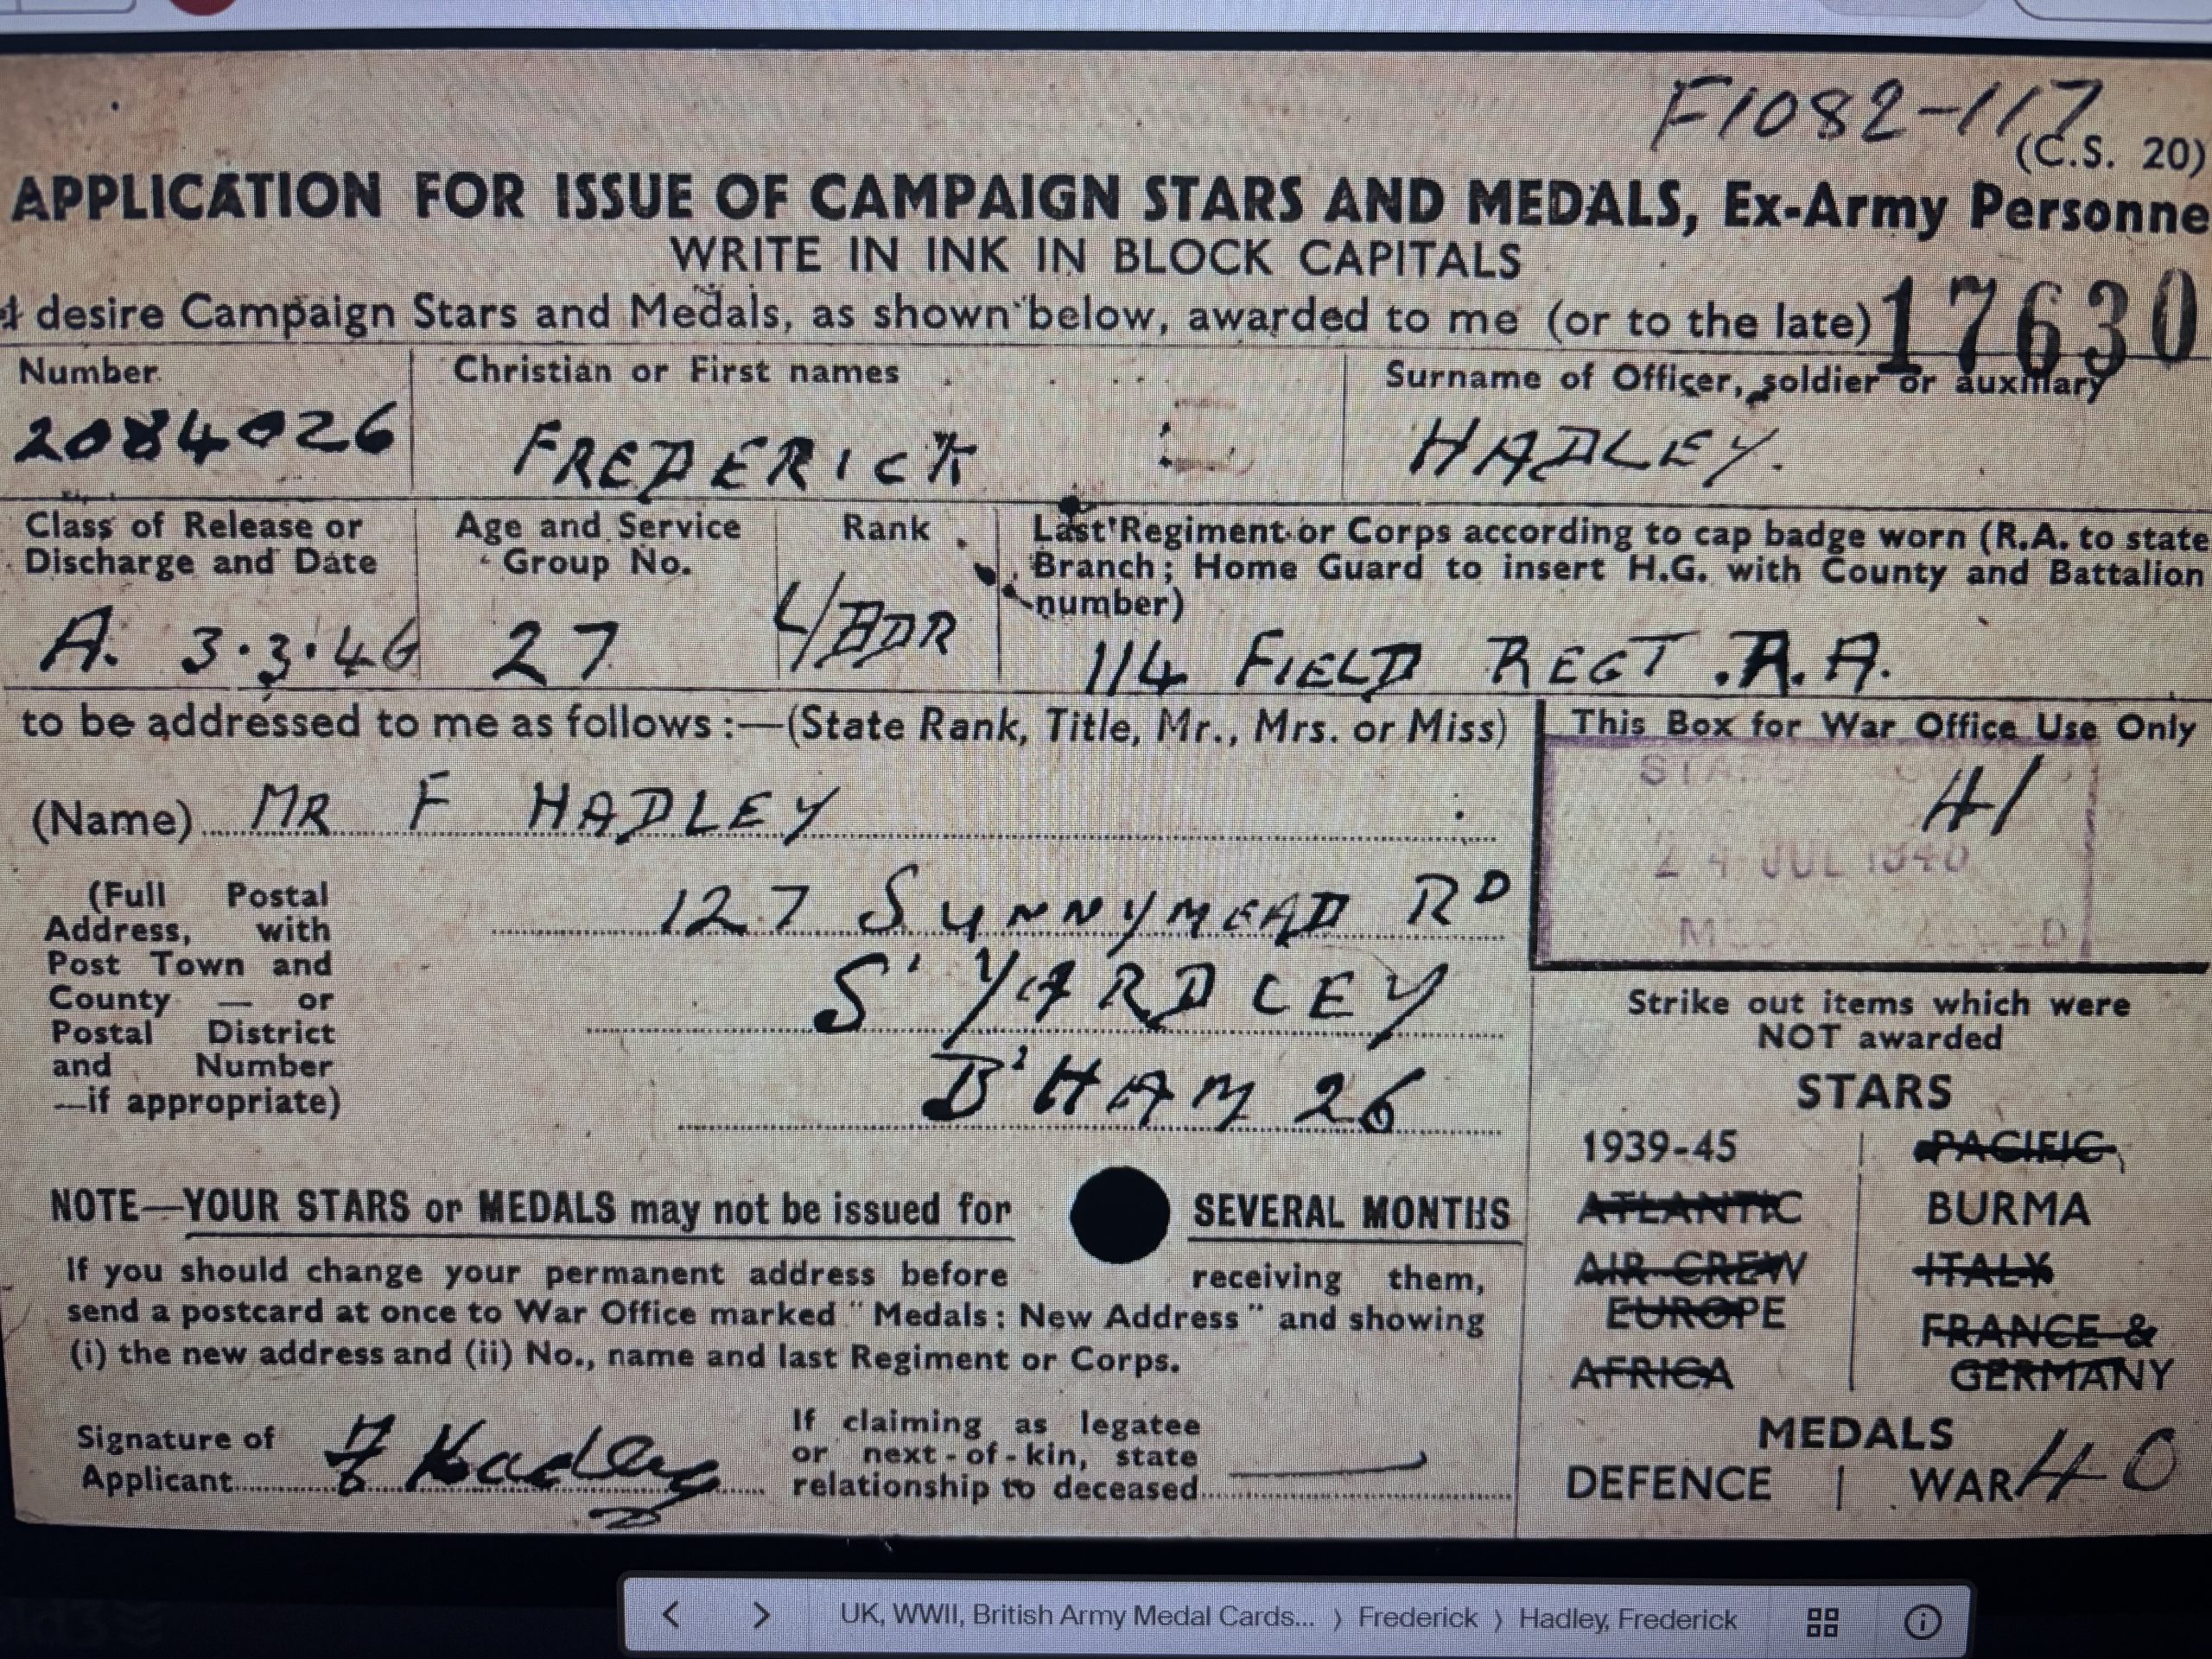 F1082-117
(C.S. 20)
APPLICATION FOR ISSUE OF CAMPAIGN STARS AND MEDALS, Ex-Army Personne
WRITE IN INK IN BLOCK CAPITALS
I desire Campaign Stars and Medals, as shown below, awarded to me (or to the late) 17630
Number
Christian or First names
Surname of Officer, soldier or auxiliary
2084026
FREDERICK
HADLEY.
Class of Release or
Discharge and Date
Age and Service
Group No.
Rank
Last Regiment or Corps according to cap badge worn (R.A. to state
Branch; Home Guard to insert H.G. with County and Battalion
number)
A. 3.3.46
27
L/BDR
114 FIELD REGT. R.A.
to be addressed to me as follows:—(State Rank, Title, Mr., Mrs. or Miss)
This Box for War Office Use Only
(Name) MR F HADLEY
41
24 JUL
(Full Postal
Address, with
Post Town and
County — or
Postal District
and Number
—if appropriate)
127 SUNNYMEAD RD
S' YARDLEY
B'HAM 26
Strike out items which were
NOT awarded
STARS
1939-45
PACIFIC
ATLANTIC
BURMA
AIR CREW
EUROPE
ITALY
AFRICA
FRANCE &
GERMANY
NOTE—YOUR STARS or MEDALS may not be issued for SEVERAL MONTHS
If you should change your permanent address before receiving them,
send a postcard at once to War Office marked "Medals: New Address" and showing
(i) the new address and (ii) No., name and last Regiment or Corps.
Signature of
Applicant F Hadley
If claiming as legatee
or next-of-kin, state
relationship to deceased
MEDALS
DEFENCE
WAR 40
UK, WWII, British Army Medal Cards... › Frederick › Hadley, Frederick